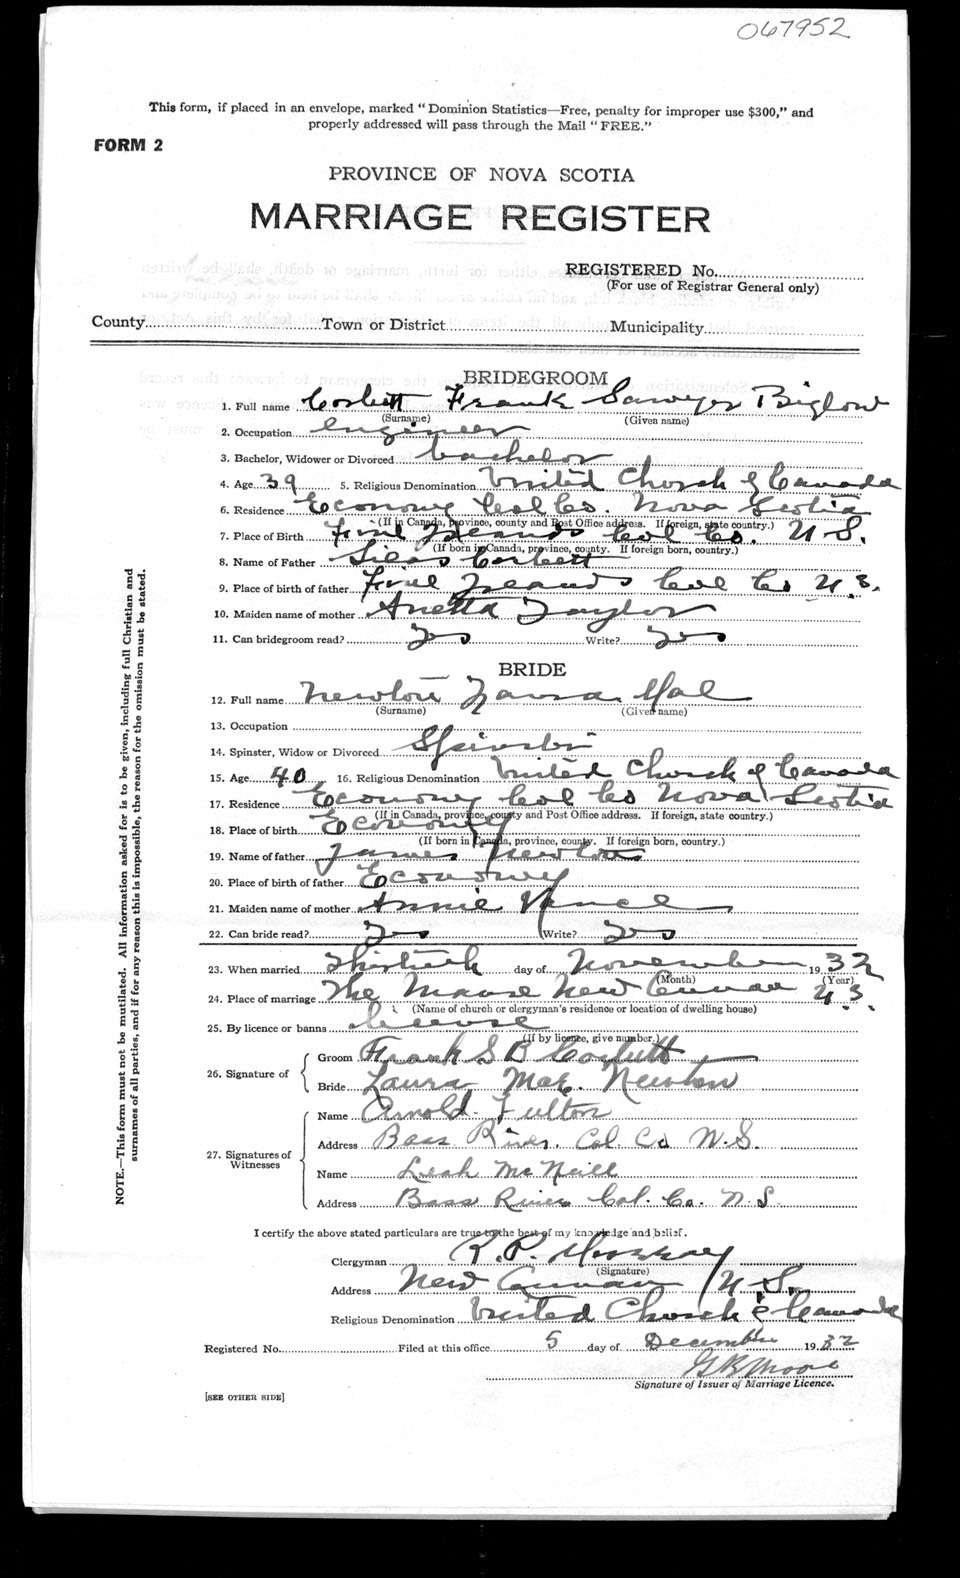 067952
This form, if placed in an envelope, marked "Dominion Statistics—Free, penalty for improper use $300," and
properly addressed will pass through the Mail "FREE."
FORM 2
PROVINCE OF NOVA SCOTIA
MARRIAGE REGISTER
REGISTERED No.
(For use of Registrar General only)
County Town or District Municipality
BRIDEGROOM
1. Full name Corbett Frank Sawyer Biglow
(Surname) (Given name)
2. Occupation engineer
3. Bachelor, Widower or Divorced bachelor
4. Age 39 5. Religious Denomination United Church of Canada
6. Residence Economy Col Co. Nova Scotia
(If in Canada, province, county and Post Office address. If foreign, state country.)
7. Place of Birth Five Islands Col Co. N.S.
(If born in Canada, province, county. If foreign born, country.)
8. Name of Father Silas Corbett
9. Place of birth of father Five Islands Col Co N.S.
10. Maiden name of mother Anetta Taylor
11. Can bridegroom read? Yes Write? Yes
BRIDE
12. Full name Newton Laura Mae
(Surname) (Given name)
13. Occupation
14. Spinster, Widow or Divorced Spinster
15. Age 40 16. Religious Denomination United Church of Canada
17. Residence Economy Col Co Nova Scotia
(If in Canada, province, county and Post Office address. If foreign, state country.)
18. Place of birth Economy
(If born in Canada, province, county. If foreign born, country.)
19. Name of father James Newton
20. Place of birth of father Economy
21. Maiden name of mother Annie Vance
22. Can bride read? Yes Write? Yes
23. When married Thirtieth day of November 1932
(Month) (Year)
24. Place of marriage The Manse New Annan N.S.
(Name of church or clergyman's residence or location of dwelling house)
25. By licence or banns license
(If by licence, give number.)
26. Signature of
Groom Frank S B Corbett
Bride Laura Mae Newton
27. Signatures of Witnesses
Name Arnold Fulton
Address Bass River Col. Co N.S.
Name Leah McNeill
Address Bass River Col. Co. N.S.
I certify the above stated particulars are true to the best of my knowledge and belief.
Clergyman R.P.
(Signature)
Address New Annan N.S.
Religious Denomination United Church of Canada
Registered No. Filed at this office 5 day of December 1932
G R Moore
Signature of Issuer of Marriage Licence.
[SEE OTHER SIDE]
NOTE.—This form must not be mutilated. All information asked for is to be given, including full Christian and
surnames of all parties, and if for any reason this is impossible, the reason for the omission must be stated.